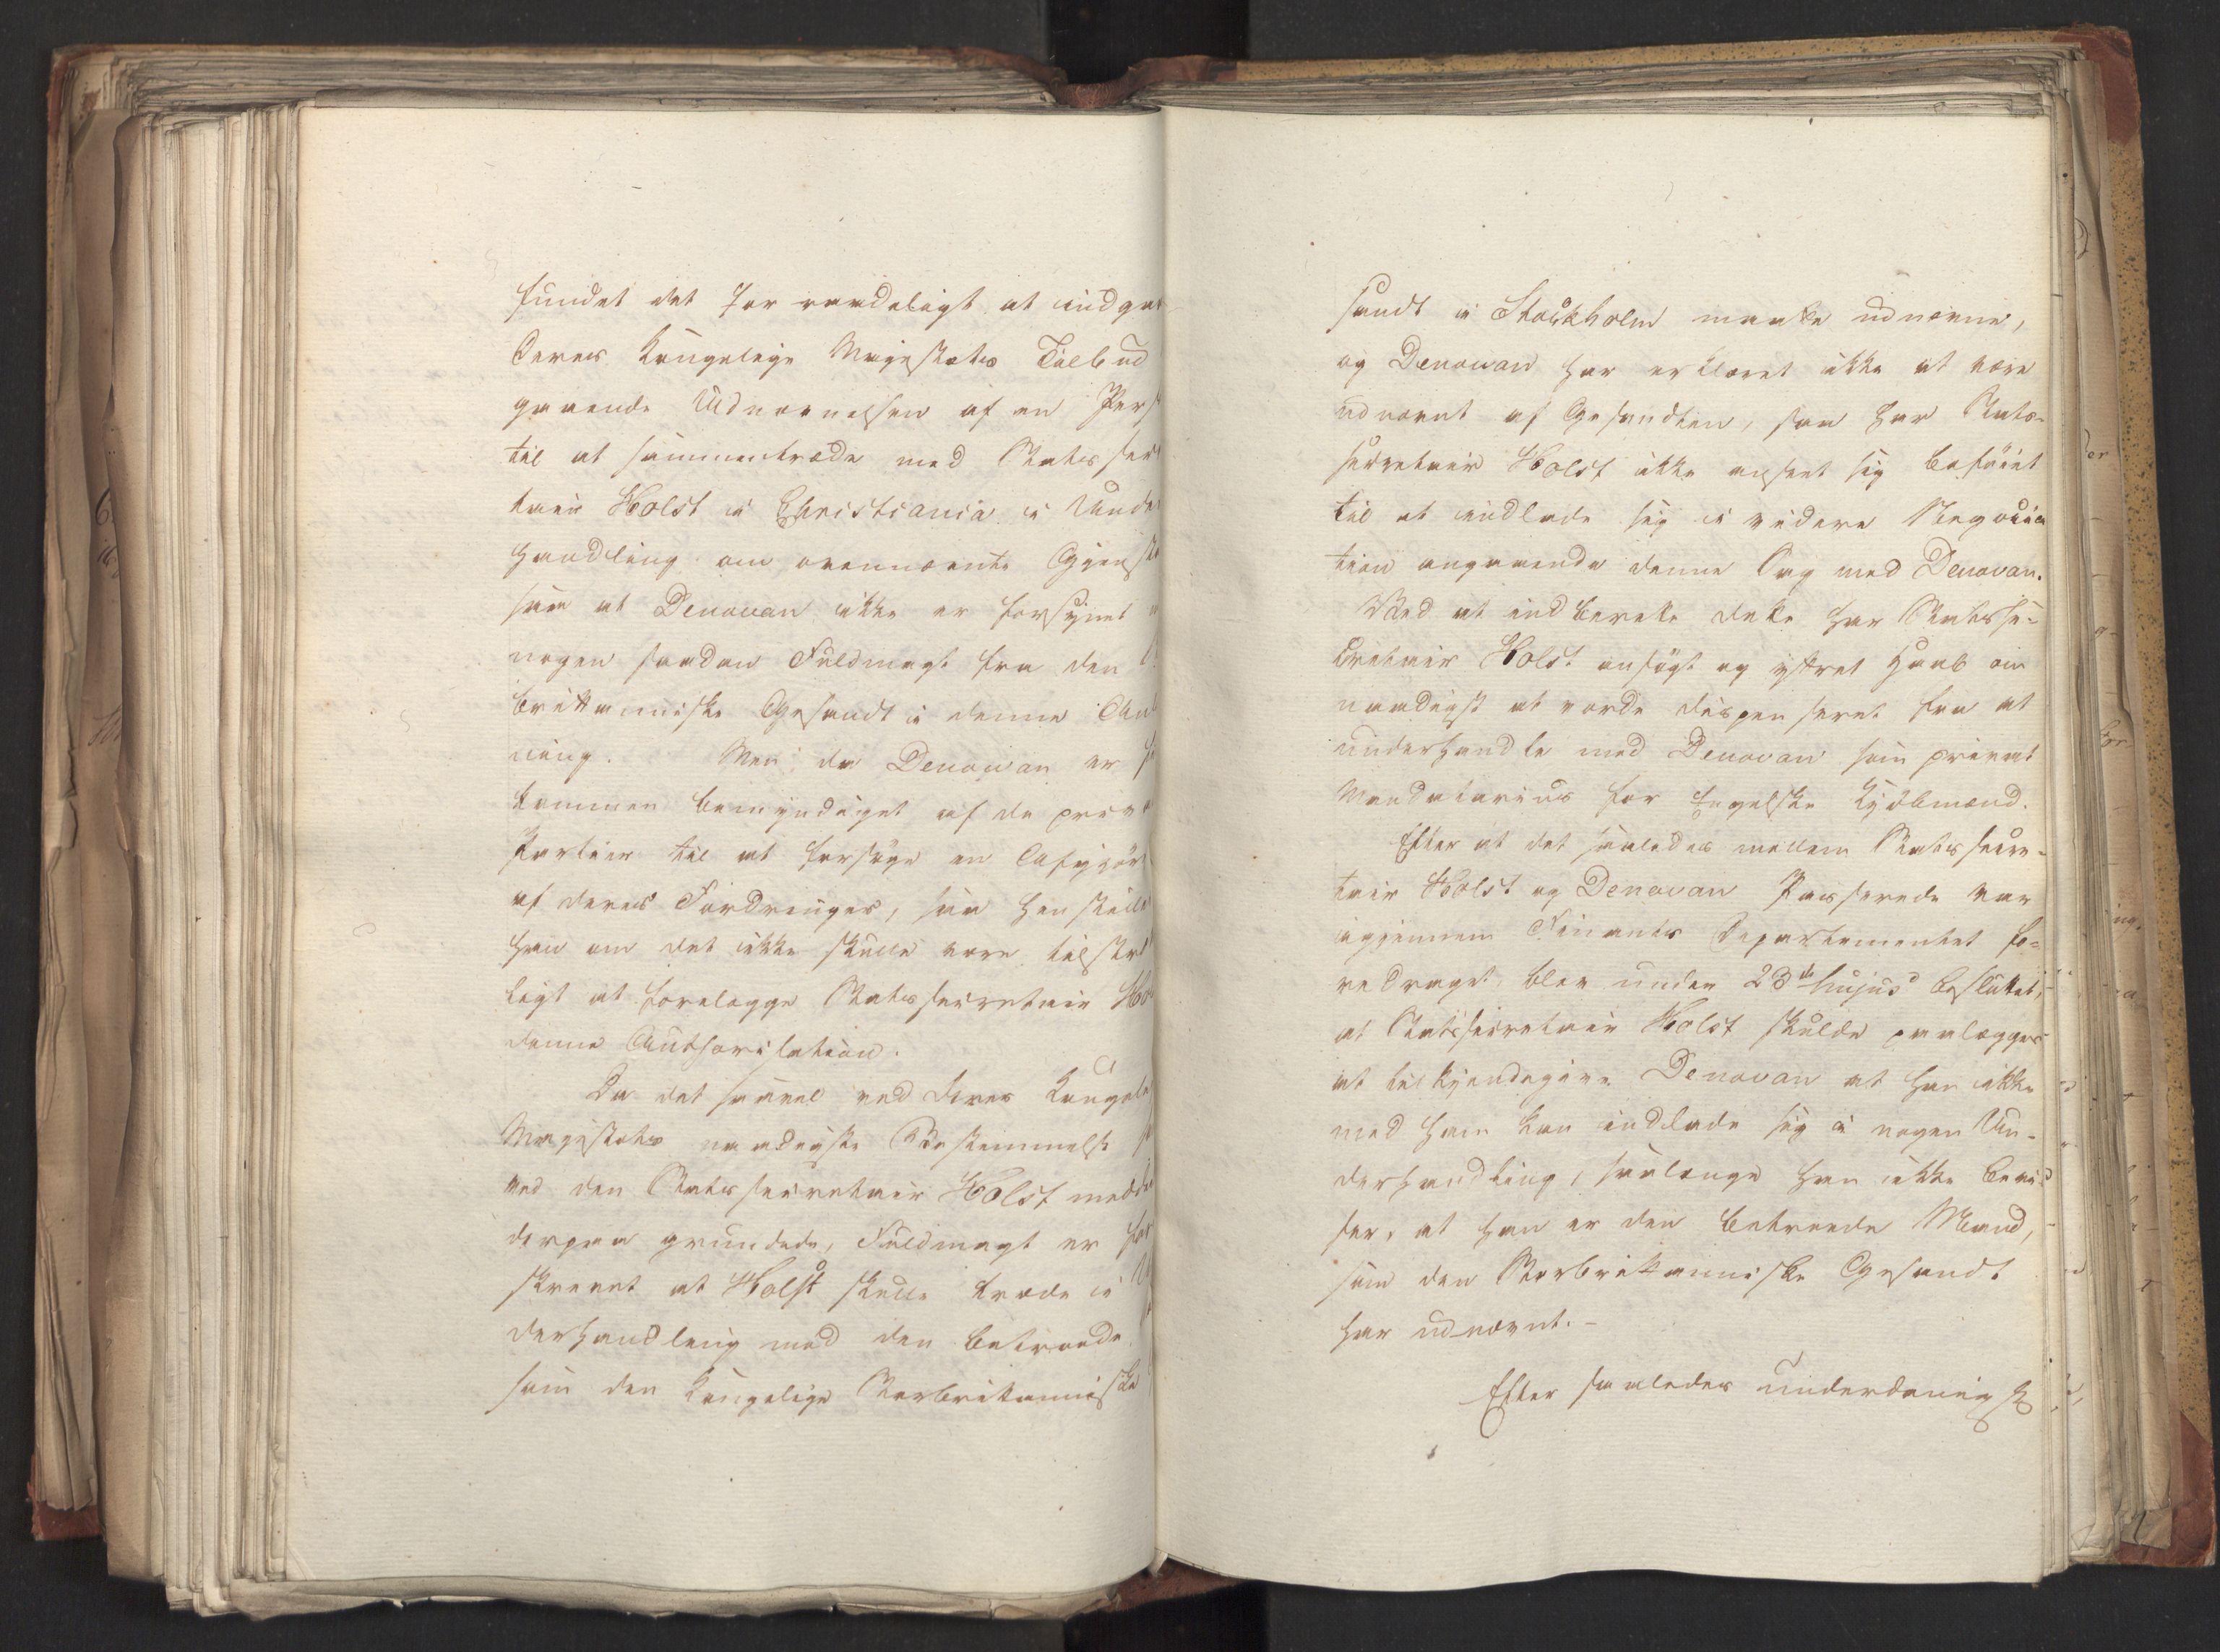 fundet det for raadeligt at indgaa
Deres Kongelige Majestæts Tilbud
gaaende Udnævnelsen af en Pers
til at sammentræde med Statssec
tair Holst i Christiania i Under
handling om ovennævnte Gjensta
saa at Denovan ikke er forsynet
nogen saadan Fuldmagt fra den
brittanniske Gesandt i denne An
ning. Men da Denovan er
kommen bemyndiget af de priva
Partier til at forsøge en Afgjør
af deres Fordringer, saa henstille
han om det ikke skulle være tilstræ
ligt at forelægge Statssecretair Ho
denne Authorisation.
Da det saavel ved Deres Kongele
Majestæts naadigste Bestemmelse
ved den Statssecretair Holst medde
derpaa grundede, Fuldmagt er for
skrevet at Holst skulle træde i U
derhandling med den betroede
som den Kongelige Storbritanniske
sandt i Stockholm maatte udnævne,
og Denovan har erklæret ikke at være
udnævnt af Gesandten, saa har Stats-
secretair Holst ikke anseet sig beføiet
til at indlade sig i videre Negocia
tion angaaende denne Sag med Denovan.
Ved at indberette dette har Statsse-
cretair Holst ansøgt og yttret Haab om
naadigst at vorde dispenseret fra at
underhandle med Denovan som privat
Mandatarius for Engelske Kjøbmænd.
Efter at det saaledes mellem Statssecre-
tair Holst og Denovan Passerede var
igjennem Finants Departementet fo-
redraget blev under 23de hujus besluttet,
at Statssecretair Holst skulde paalægges
at tilkjendegive Denovan at han ikke
med ham kan indlade sig i nogen Un-
derhandling, saalænge han ikke bevi-
ser, at han er den betroede Mand,
som den Storbrittanniske Gesandt
har udnævnt.-
Efter saaledes underdanigst